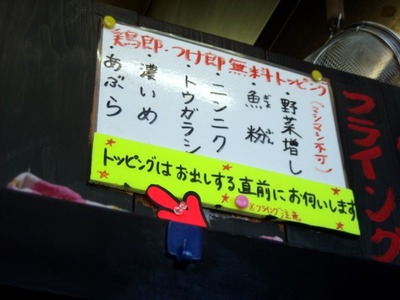 鶏郎・つけ郎無料トッピング
(マシマシ不可)
・野菜増し
・魚粉
・ニンニク
・トウガラシ
・濃いめ
・あぶら
トッピングはお出しする直前にお伺いします
※フライング注意
フライング